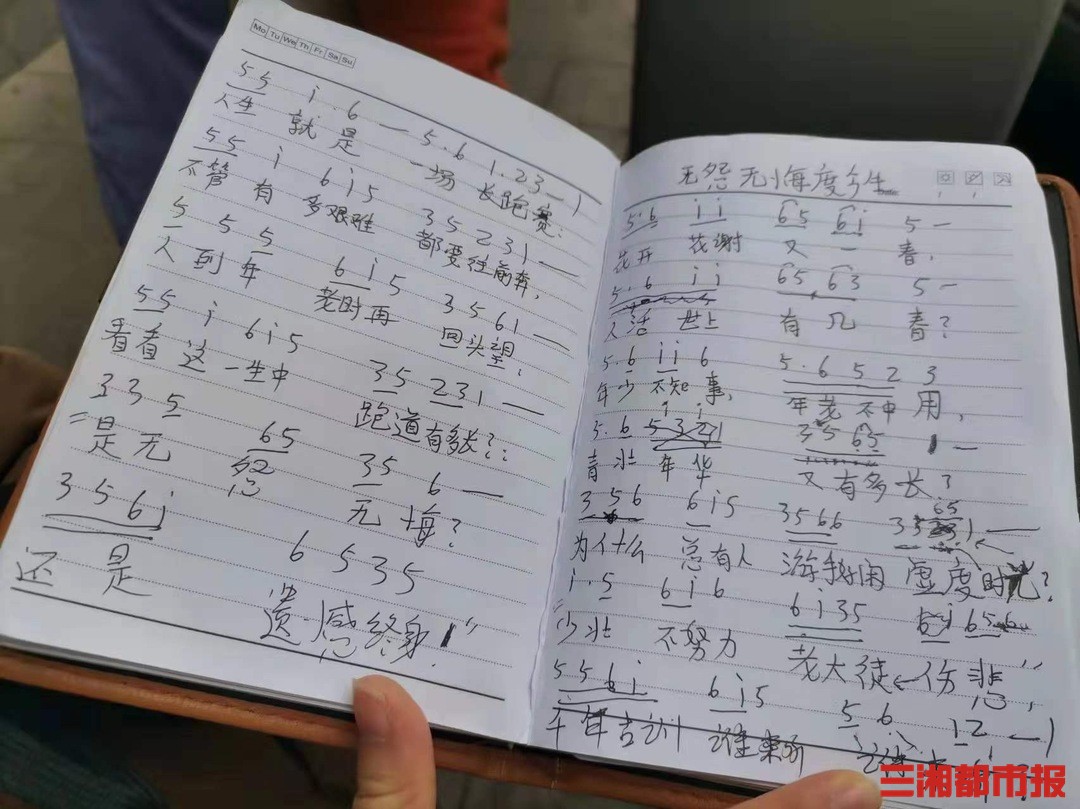 Mo Tu We Th Fr Sa Su
55 i.6 — 5.6 1.23 — 1
人生 就是 一场 长跑赛:
55 i 6i5 35231 —
不管 有 多艰难 都要往前奔,
5 5 5 6i5 3561 —
人到年 老时再 回头望,
55 i 6i5 35 231 —
看看这一生中 跑道有多长?:
335 65 35 6 —
"是无怨 无悔?
356i 6535
还是 遗憾终身!"
无怨无悔度今生
5.6 ii 65 6i 5 —
花开 花谢 又一 春,
5.6 ii 65.63 5 —
人活 世上 有几 春?
5.6 ii 6 5.652 3
年少 不知事, 年老不中用,
5.6 5321 35 65 1 —
青壮年华 又有多长?
356 6i5 3566 35 1 —
为什么 总有人 游手好闲 虚度时光?
i.5 6i6 6i35 6i65
"少壮 不努力 老大徒伤悲"
556i 6i5 56 12 — 1
三湘都市报